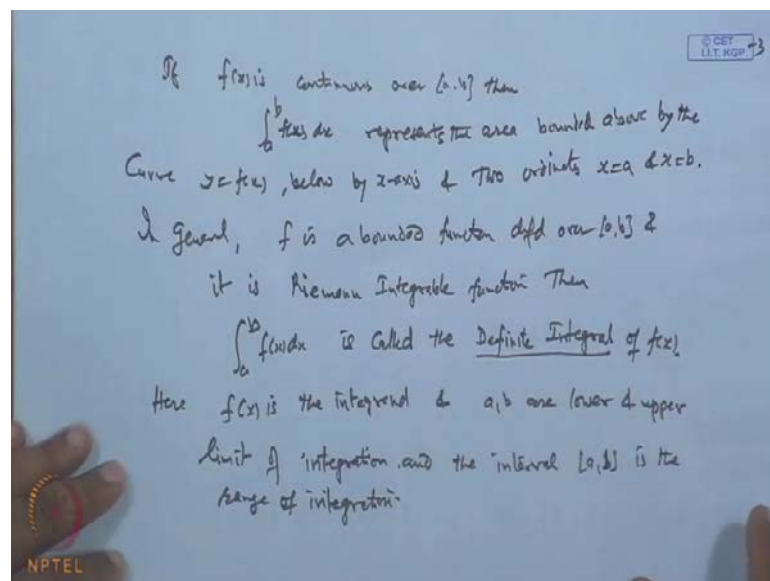 © CET
I.I.T. KGP
-3
If f(x) is continuous over [a,b] then
∫_a^b f(x) dx represents the area bounded above by the
Curve y = f(x), below by x-axis & Two ordinates x=a & x=b.
In General, f is a bounded function defd over [a,b] &
it is Riemann Integrable function Then
∫_a^b f(x) dx is called the Definite Integral of f(x).
Here f(x) is the integrend & a,b are lower & upper
limit of integration and the interval [a,b] is the
range of integration.
NPTEL